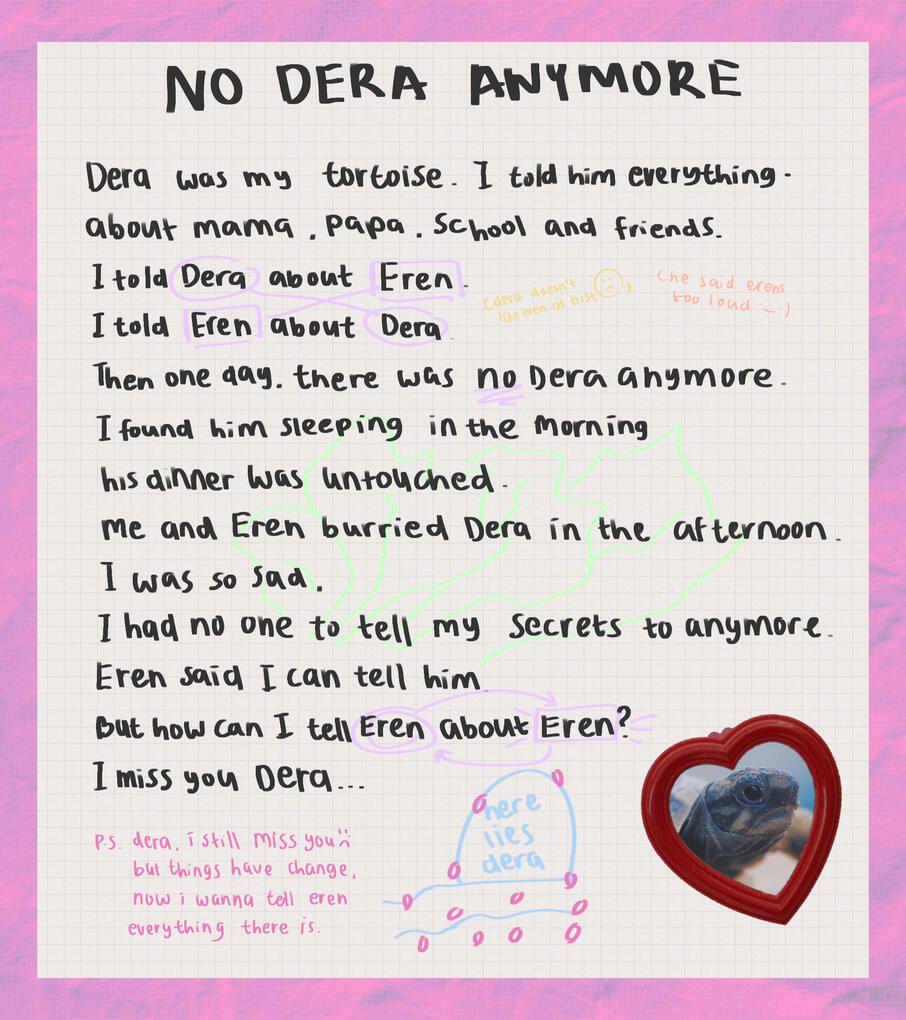 NO DERA ANYMORE
Dera was my tortoise. I told him everything.
about mama, papa, school and friends.
I told Dera about Eren.
(dera doesn't
like eren at first ☹)
(he said erens
too loud -_-)
I told Eren about Dera.
Then one day, there was no Dera anymore.
I found him sleeping in the morning
his dinner was untouched.
me and Eren burried Dera in the afternoon.
I was so sad.
I had no one to tell my secrets to anymore.
Eren said I can tell him.
But how can I tell Eren about Eren?
I miss you Dera...
here
lies
dera
P.S. dera, i still miss you :(
but things have change,
now i wanna tell eren
everything there is.